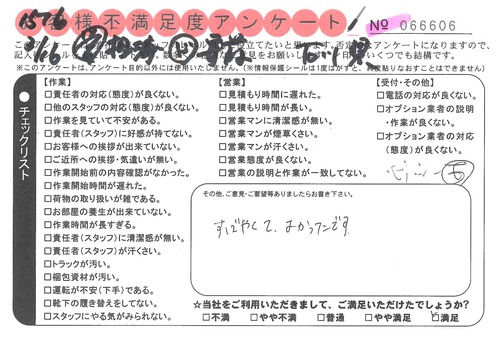 156
お客様不満足度アンケート!
№ 066606
11.6
石川県
このアンケートは、
立てたいと思います。否定
はアンケートになりますので、
記入
いくつでも結構です。
※このアンケートは、アンケート目的以外には使用いたしません。(※情報保護シールは1度はがすと、再度貼りなおすことはできません)
チェックリスト
【作業】
□責任者の対応(態度)が良くない。
□他のスタッフの対応(態度)が良くない。
□作業を見ていて不安がある。
□責任者(スタッフ)に好感が持てない。
□お客様への挨拶が出来ていない。
□ご近所への挨拶・気遣いが無い。
□作業開始前の内容確認がなかった。
□作業開始時間が遅れた。
□荷物の取り扱いが雑である。
□お部屋の養生が出来ていない。
□作業時間が長すぎる。
□責任者(スタッフ)に清潔感が無い。
□責任者(スタッフ)が汗くさい。
□トラックが汚い。
□梱包資材が汚い。
□運転が不安(下手)である。
□靴下の履き替えをしてない。
□スタッフにやる気がみられない。
【営業】
□見積もり時間に遅れた。
□見積もり時間が長い。
□営業マンに清潔感が無い。
□営業マンが煙草くさい。
□営業マンが汗くさい。
□営業態度が良くない。
□営業の説明と作業が一致してない。
【受付・その他】
□電話の対応が良くない。
□オプション業者の説明
・作業が良くない。
□オプション業者の対応
(態度)が良くない。
その他、ご意見・ご要望等ありましたらお書き下さい。
すばやくて、よかったです
☆当社をご利用いただきまして、ご満足いただけたでしょうか?
□不満 □やや不満 □普通 □やや満足 ☑満足